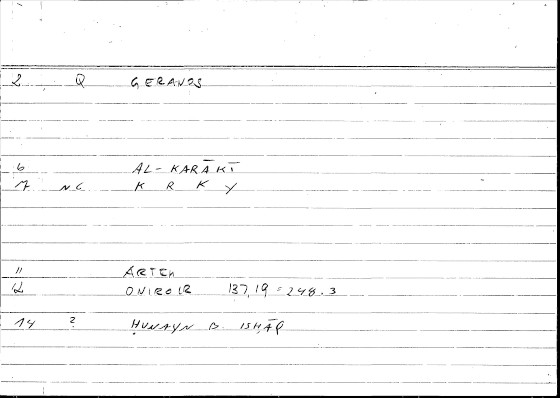 2 Q GERANOS
6 AL-KARĀKĪ
7 NC K R K Y
11 ARTEM
12 ONIROCR 137,19 = 248.3
14 ? ḤUNAYN B. ISḤĀQ